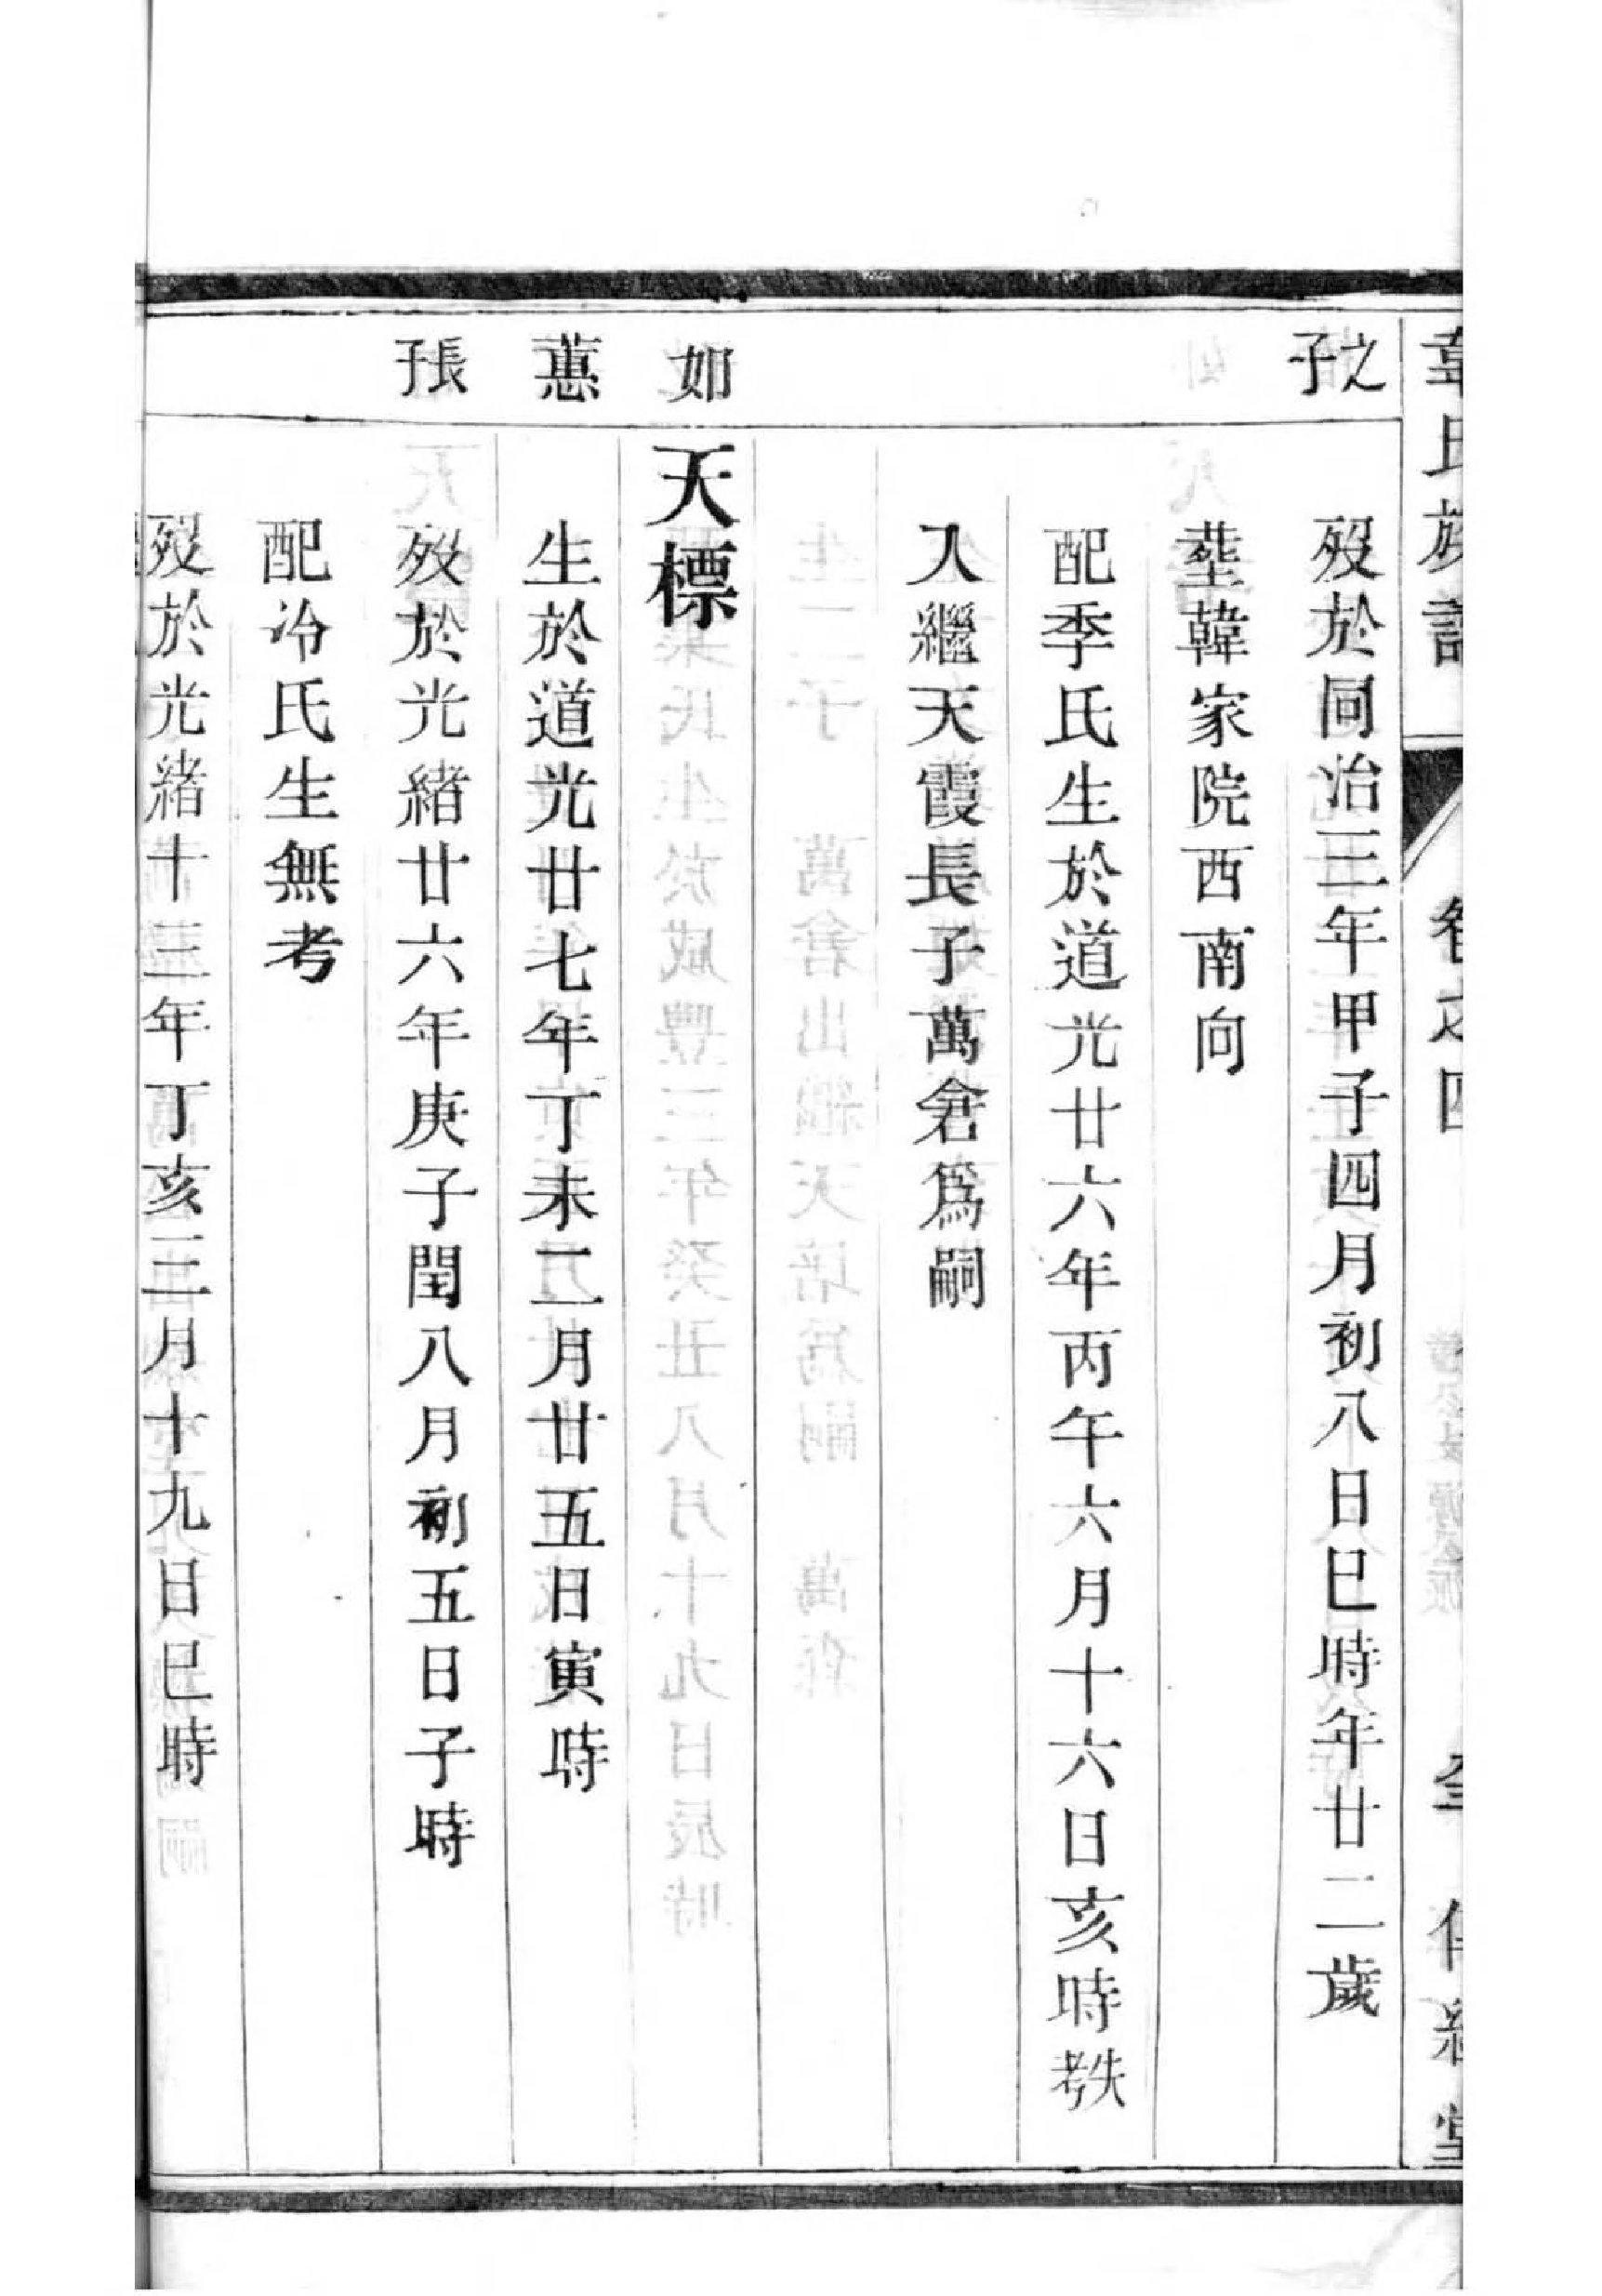 韋氏族譜 卷之四 傳經堂
之子
歿於同治三年甲子四月初八日巳時年廿二歲
塟韓家院西南向
配季氏生於道光廿六年丙午六月十六日亥時失考
入繼天霞長子萬倉爲嗣
如
天標
蕙
生於道光廿七年丁未二月廿五日寅時
張子
歿於光緒廿六年庚子閏八月初五日子時
配冷氏生無考
歿於光緒十三年丁亥三月十九日巳時